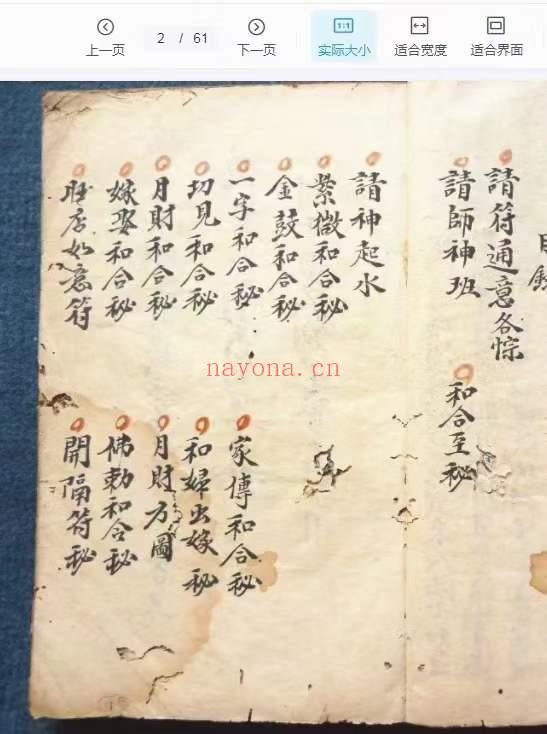 上一页
2 / 61
下一页
实际大小
适合宽度
适合界面
目錄
請符通意各悰
請師神班
和合至秘
請神起水
紫微和合秘
金鼓和合秘
一字和合秘
家傳和合秘
切見和合秘
和婦出嫁秘
月財和合秘
月財方圖
嫁娶和合秘
佛勅和合秘
如意符
開隔符秘
nayona.cn